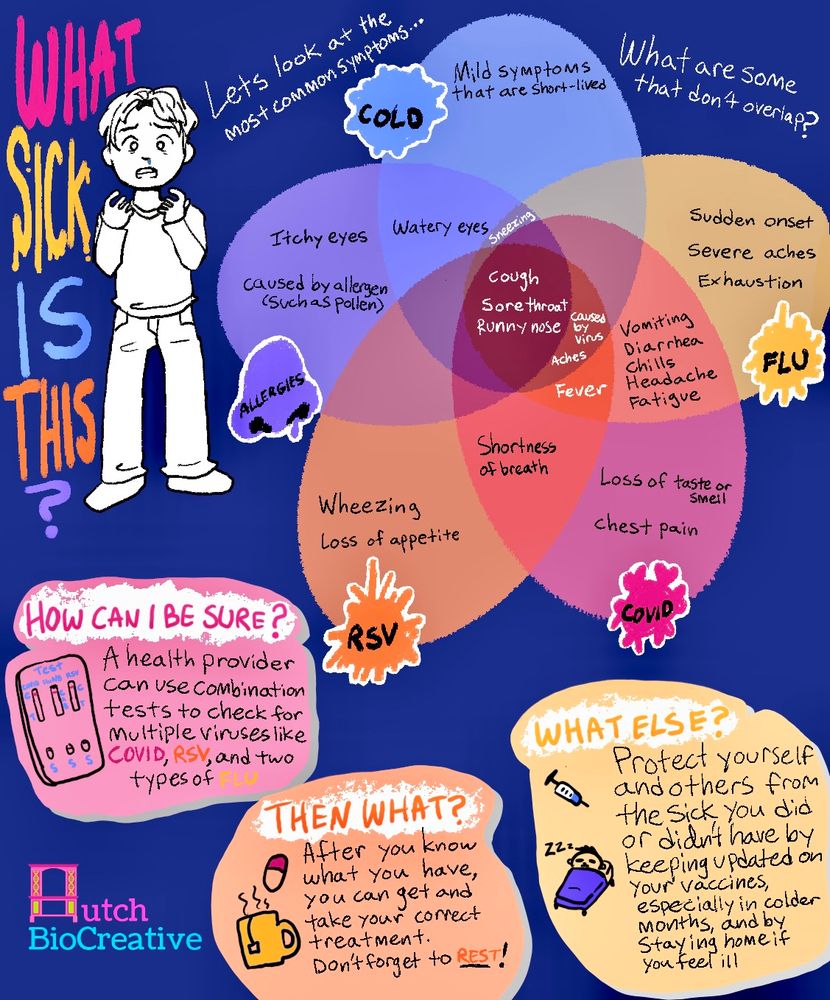 WHAT
SICK
IS
THIS
?
Lets look at the
most common symptoms...
What are some
that don't overlap?
COLD
Mild symptoms
that are short-lived
Itchy eyes
caused by allergen
(such as pollen)
ALLERGIES
Watery eyes
Sneezing
Sudden onset
Severe aches
Exhaustion
FLU
Cough
Sore throat
Runny nose
caused
by
virus
Aches
Fever
Vomiting
Diarrhea
Chills
Headache
Fatigue
Shortness
of breath
Wheezing
Loss of appetite
RSV
Loss of taste or
smell
Chest pain
COVID
HOW CAN I BE SURE?
Test
A health provider
can use combination
tests to check for
multiple viruses like
COVID, RSV, and two
types of FLU
S S S
THEN WHAT?
After you know
what you have,
you can get and
take your correct
treatment.
Don't forget to REST!
WHAT ELSE?
Protect yourself
and others from
the sick you did
or didn't have by
keeping updated on
your vaccines,
especially in colder
months, and by
staying home if
you feel ill
zzz
Hutch
BioCreative